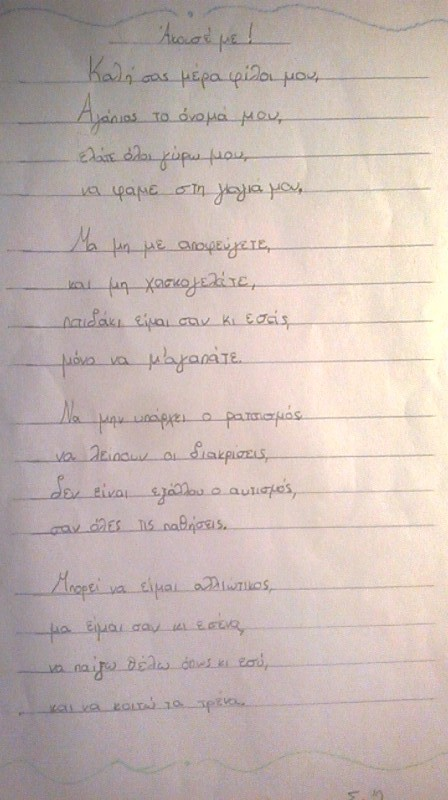 Άκουσέ με!
Καλή σας μέρα φίλοι μου,
Αγάπιος το όνομά μου,
ελάτε όλοι γύρω μου,
να φάμε στη γιαγιά μου.
Μα μη με αποφεύγετε,
και μη χασκογελάτε,
παιδάκι είμαι σαν κι εσάς,
μόνο να μ'αγαπάτε.
Να μην υπάρχει ο ρατσισμός
να λείπουν οι διακρίσεις,
δεν είναι εξάλλου ο αυτισμός,
σαν όλες τις παθήσεις.
Μπορεί να είμαι αλλιώτικος,
μα είμαι σαν κι εσένα,
να παίζω θέλω όπως κι εσύ,
και να κοιτώ τα τρένα.